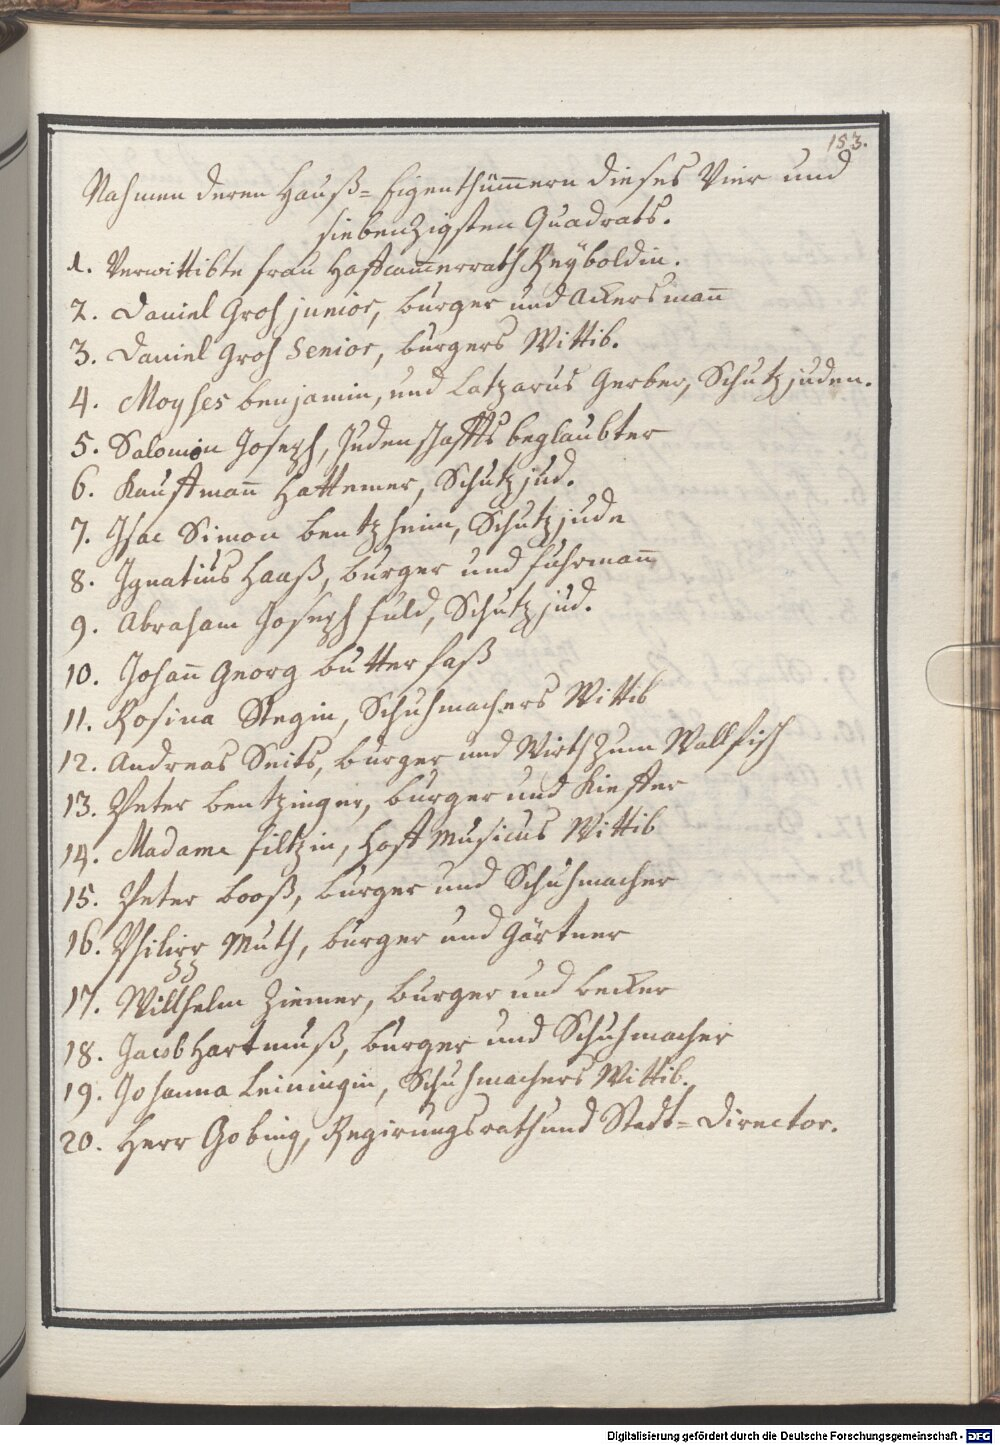 153.
Nahmen deren Hauß=Eigenthüm̅ern dieses Vier und
siebenzigsten Quadrats.
1. Verwittibte frau Hoffcam̅errath Reÿboldin.
2. Daniel Groh junior, burger und Ackersman̅
3. Daniel Groh Senior, burgers Wittib.
4. Moyses benjamin, und Latzarus Gerber, Schutzjuden.
5. Salomon Joseph, Judenschaffts beglaubter
6. Kauffman̅ Hattemer, Schutzjud.
7. Isac Simon bentzheim, Schutzjude
8. Ignatius Haaß, burger und fuhrman̅
9. Abraham Joseph fuld, Schutzjud.
10. Johan̅ Georg butterfaß
11. Rosina Stegin, Schuhmachers Wittib
12. Andreas Seits, burger und Wirth zum Wallfisch
13. Peter bentzinger, burger und Kieffer
14. Madame filtzin, Hoff Musicus Wittib
15. Peter booß, burger und Schuhmacher
16. Philipp Muth, burger und Gärtner
17. Willhelm Ziemer, burger und becker
18. Jacob Hartmuß, burger und Schuhmacher
19. Johanna Leiningin, Schuhmachers Wittib.
20. Herr Gobing, Regirungsrath und Stadt=Director.
Digitalisierung gefördert durch die Deutsche Forschungsgemeinschaft - DFG